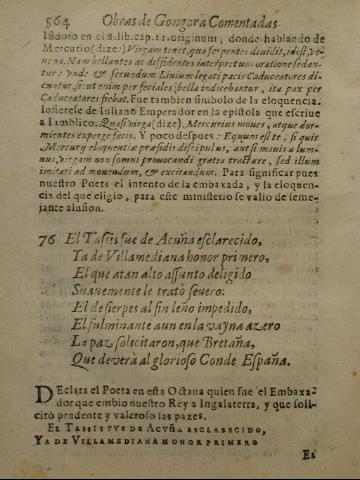 564 Obras de Gongora Comentadas
Isidoro en el 8. lib. cap. 11. originum, donde hablando de
Mercurio (dize:) Virgam tenet, qua serpentes diuidit, id est, ve-
nena. Nam bellantes ac dissidentes interpretum oratione sedan-
tur: vnde & secundum Liuium legati pacis Caduceatores di-
cuntur, si: ut enim per feciales bella indicebantur, ita pax per
Caduceatores fiebat. Fue tambien simbolo de la eloquencia.
Infierese de Iuliano Emperador en la epistola que escriue
a Iamblico. Quasi virga (dize) Mercurius moues, atque dor-
mientes expergefacis. Y poco despues: Equum est te, si quis
Mercurij eloquentiæ præsidis discipulus, aut si mauis alum-
nus, virgam non somni prouocandi gratia tractare, sed illum
imitari ad mouendum, & excitandum. Para significar pues
nuestro Poeta el intento de la embaxada, y la eloquen-
cia del que eligio, para este ministerio se valio de seme-
jante alusion.
76 El Tassis fue de Acuña esclarecido,
Ya de Villamediana honor primero,
El que a tan alto assunto deligido
Suauemente le tratò seuero:
El de sierpes al fin leño impedido,
El fulminante aun en la vayna azero
La paz solicitaron, que Bretaña,
Que deverà al glorioso Conde España.
DEclara el Poeta en esta Octaua quien fue el Embaxa-
dor que embio nuestro Rey a Ingalaterra, y que soli-
citò prudente y valeroso las pazes.
EL TASSIS FVE DE ACVÑA ESCLARECIDO,
YA DE VILLAMEDIANA HONOR PRIMERO
El